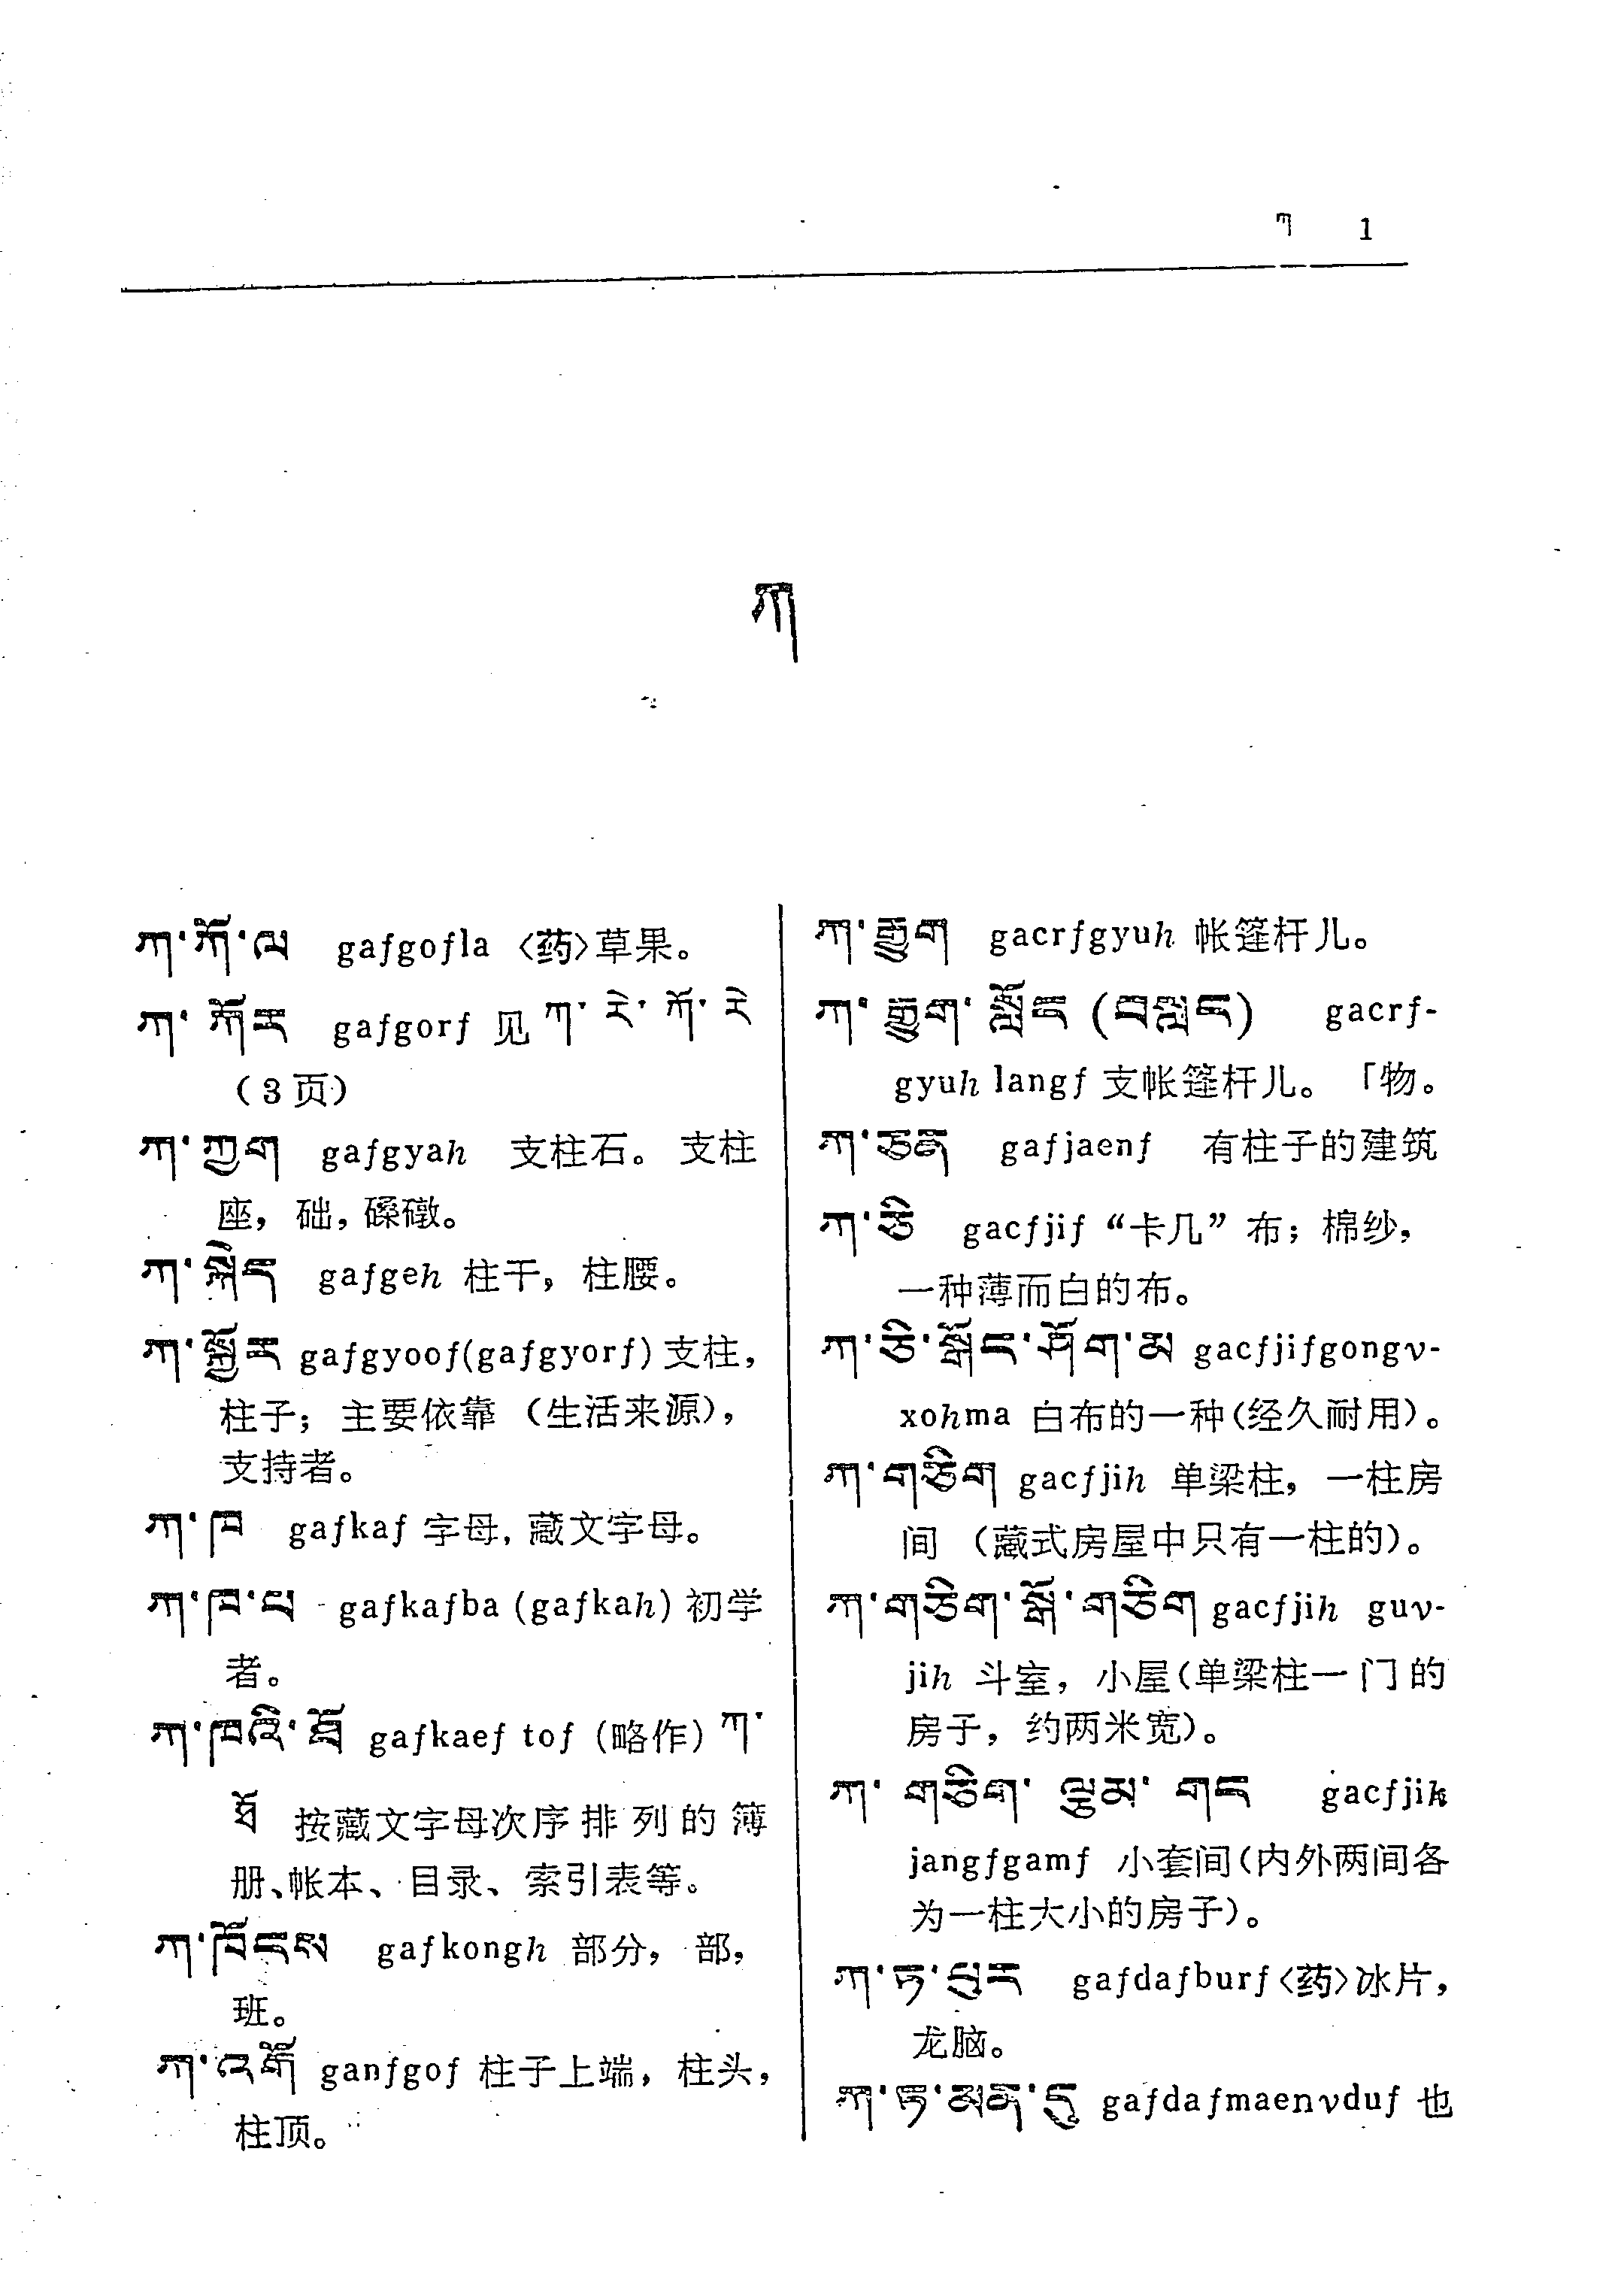 ཀ 1
ཀ
ཀ་ཀོ་ལ gafgofla〈药〉草果。
ཀ་ ཀོར gafgorf 见 ཀ་ རེ་ ཀོ་ རེ
（3页）
ཀ་ཀྱག gafgyah 支柱石。支柱
座，础，磉礅。
ཀ་སྐེད gafgeh 柱干，柱腰。
ཀ་སྐྱོར gafgyoof(gafgyorf) 支柱，
柱子；主要依靠（生活来源），
支持者。
ཀ་ཁ gafkaf 字母，藏文字母。
ཀ་ཁ་པ gafkafba (gafkah) 初学
者。
ཀ་ཁའི་ཐོ gafkaef tof (略作) ཀ་
ཐོ 按藏文字母次序排列的簿
册、帐本、目录、索引表等。
ཀ་ཁོངས gafkongh 部分，部，
班。
ཀ་འགོ ganfgof 柱子上端，柱头，
柱顶。
ཀ་རྒྱུག gacrfgyuh 帐篷杆儿。
ཀ་ རྒྱུག་ སློང (བསླང) gacrf-
gyuh langf 支帐篷杆儿。「物。
ཀ་ཅན gafjaenf 有柱子的建筑
ཀ་ཅི gacfjif “卡几”布；棉纱，
一种薄而白的布。
ཀ་ཅི་སྒོང་ཤོག་མ gacfjifgongv-
xohma 白布的一种(经久耐用)。
ཀ་གཅིག gacfjih 单梁柱，一柱房
间（藏式房屋中只有一柱的）。
ཀ་གཅིག་སྒོ་གཅིག gacfjih guv-
jih 斗室，小屋(单梁柱一门的
房子，约两米宽)。
ཀ་ གཅིག་ ལྕམ་ གང gacfjih
jangfgamf 小套间(内外两间各
为一柱大小的房子)。
ཀ་ཏ་པུར gafdafburf〈药〉冰片，
龙脑。
ཀ་ཏ་མན་དུ gafdafmaenvduf 也